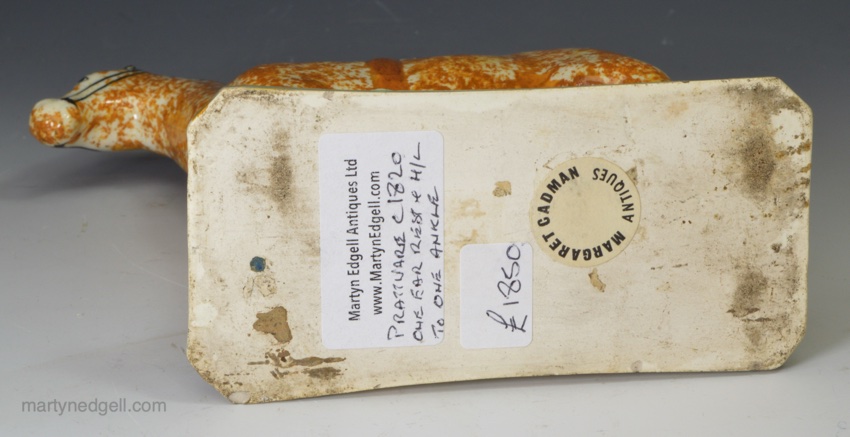 Martyn Edgell Antiques Ltd
www.MartynEdgell.com
PRATTWARE C1820
ONE EAR REST & H/L
TO ONE ANKLE
£1850
MARGARET CADMAN ANTIQUES
martynedgell.com